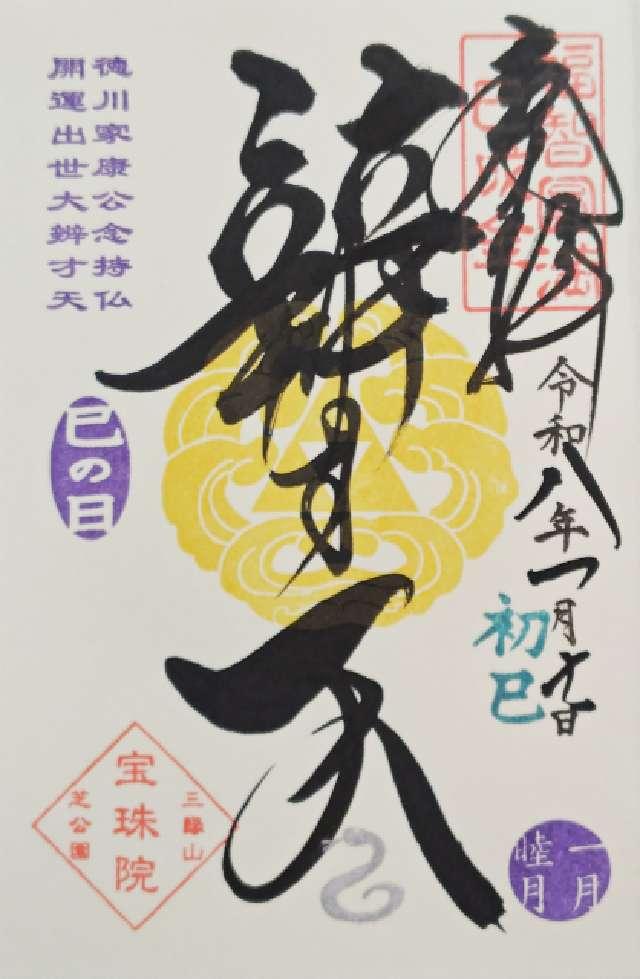 奉拝
福智円満
令和八年一月十一日
初巳
辨才天
徳川家康公念持仏
開運出世大辨才天
巳の日
三縁山
宝珠院
芝公園
一月
睦月